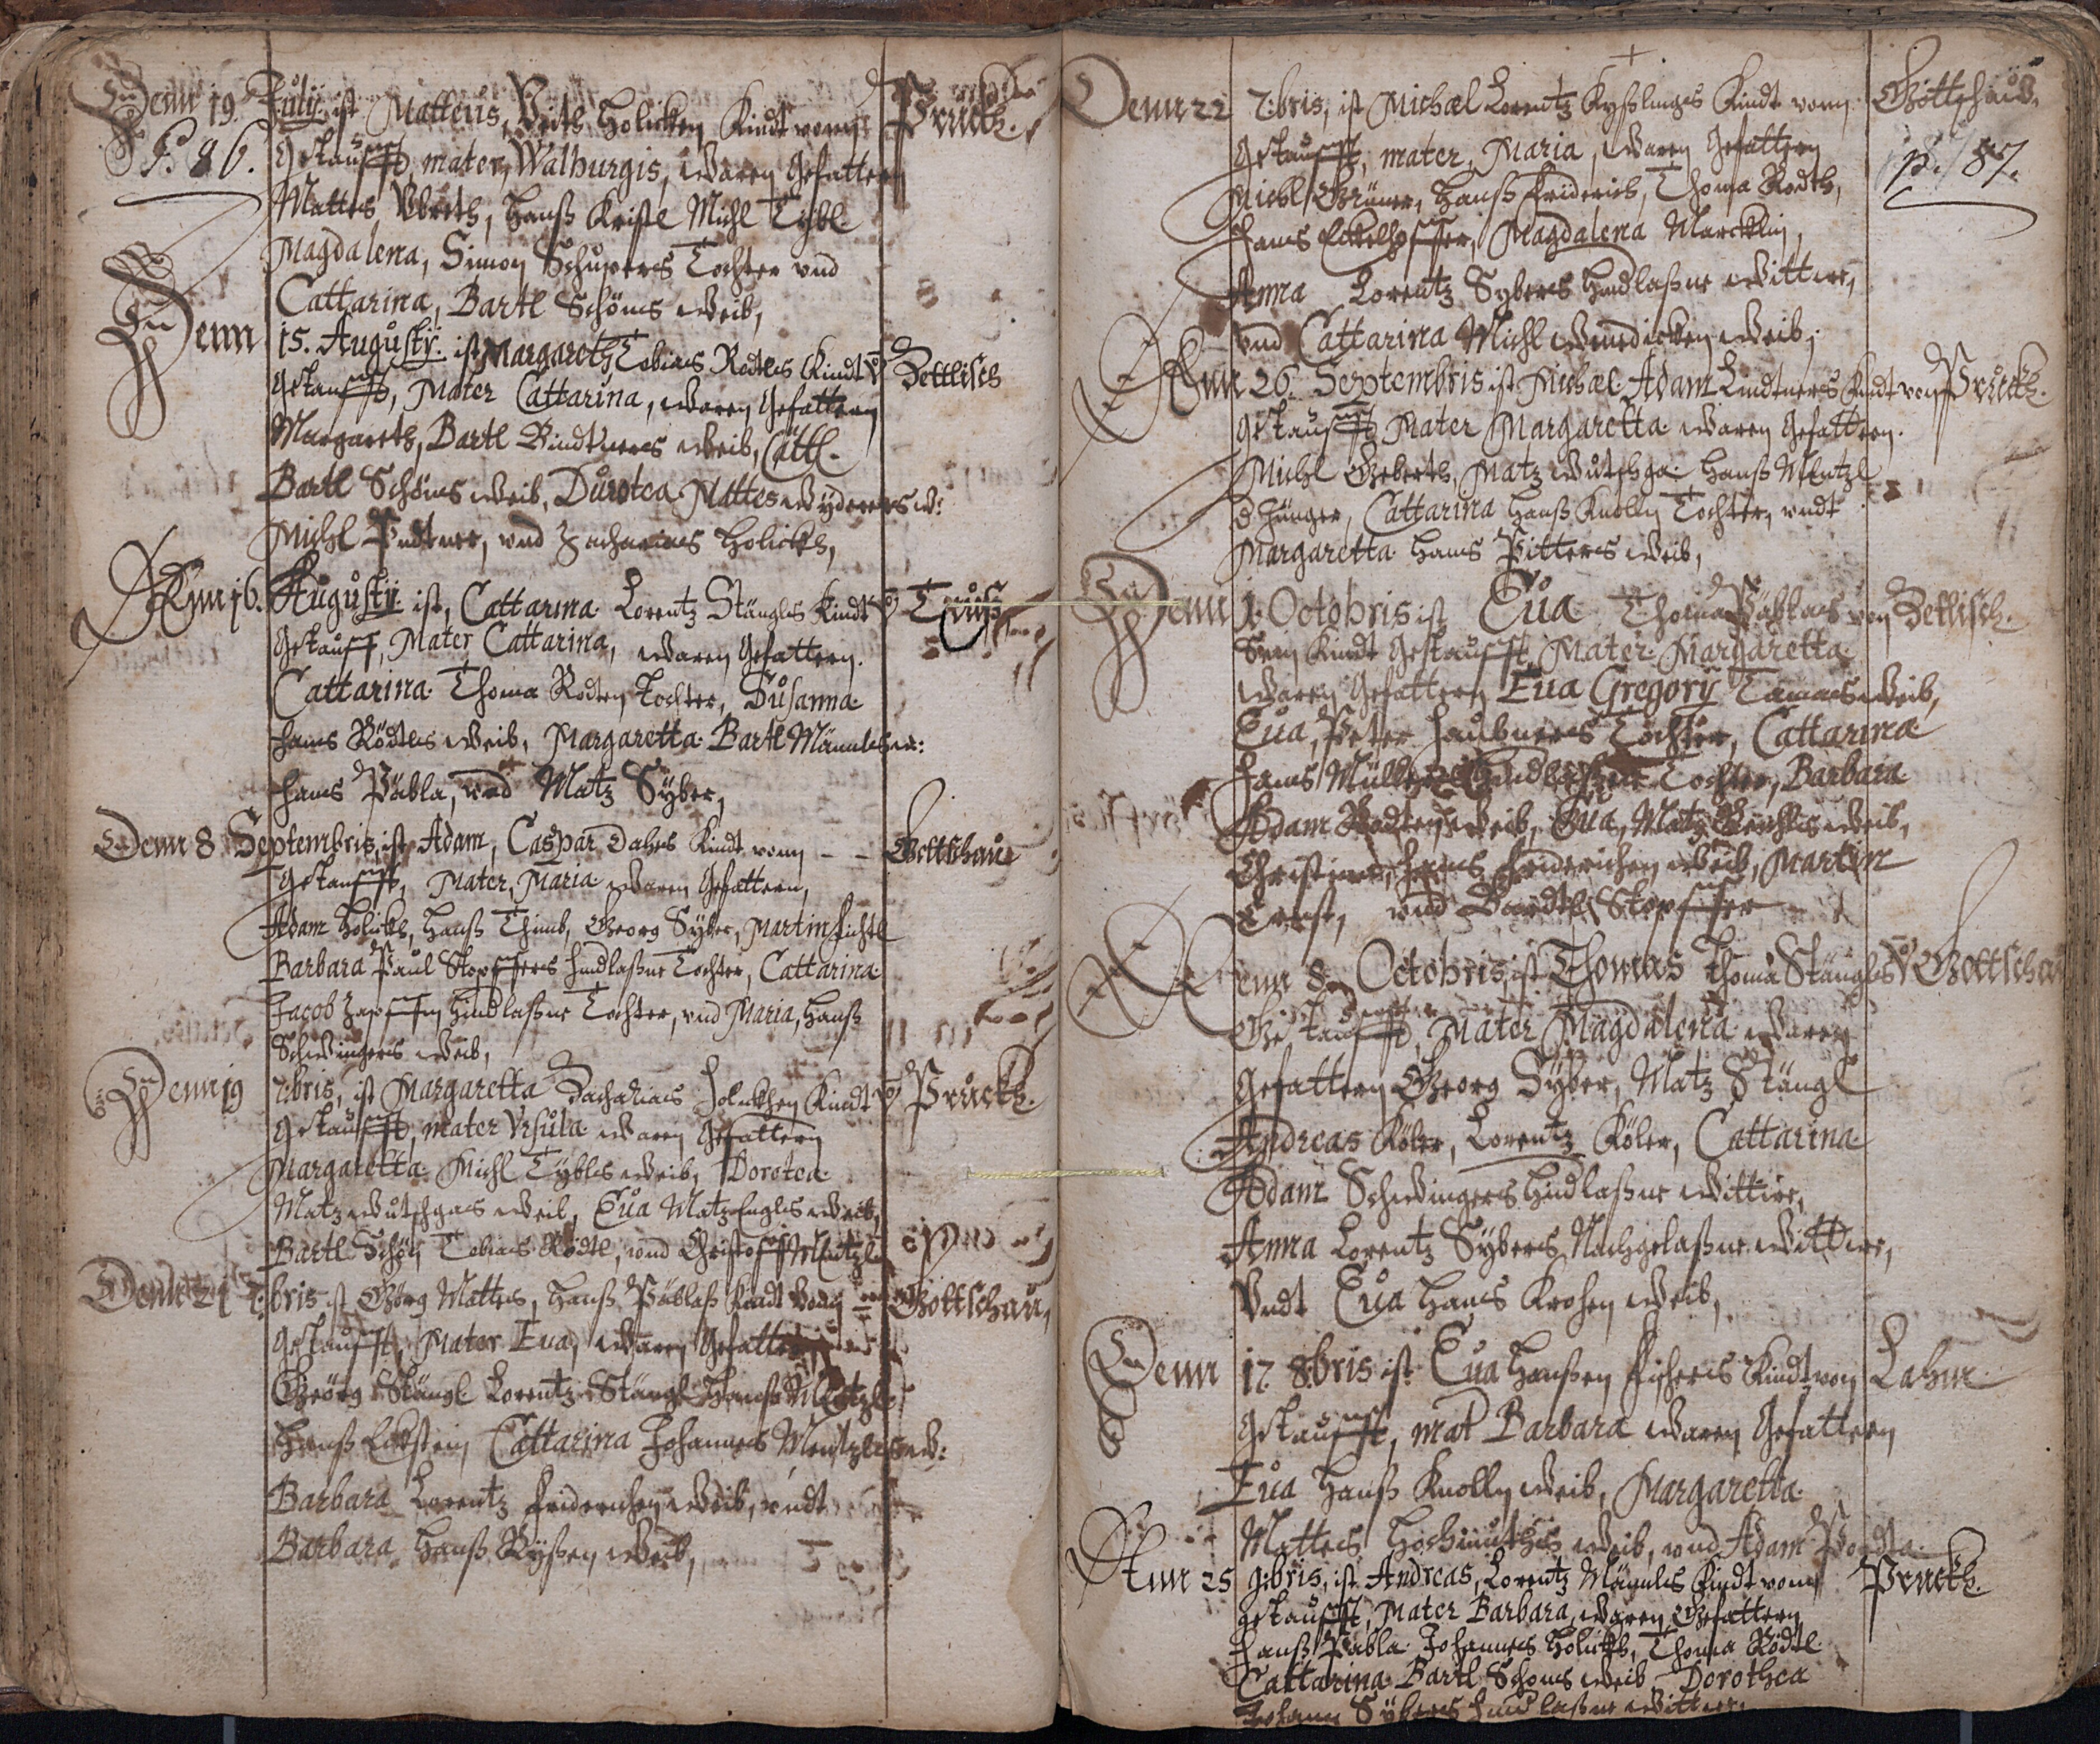 Denn 19. July ist Matteus, Veith Holickhen Kindt vonn Pruckh.
P. 86. Getaufft, mater, Walburgis, waren Gefattern
Mattes Vbreth, Hanß Kristl Michl Tybl
Magdalena, Simon Schusters Tochter vnd
Cattarina, Bartl Schöns weib,
Denn 15. Augusty ist Margareth Tobias Rodtls Kindt v Zettlisch
Getaufft, Mater Cattarina, waren Gefattern
Margareth, Bartl Bindtners weib, Cattl.
Bartl Schöns weib, Durotea Mattes w:
Michl vnd Zacharias Holickh,
Denn 16. Augusty ist, Cattarina Lorentz Stängls Kindt v
Getaufft, Mater Cattarina, waren Gefattern.
Cattarina Thoma Rodten Tochter, Susanna
Hans Rödtls weib, Margaretta Bartl Männls w:
Hans Päbla, vnd Matz Syber,
Denn 8 Septembris, ist Adam, Caspar Dahes Kindt vonn - - Gottschau
Getaufft, Mater, Maria waren Gefattern,
Adam Holickh, Hanß Thimb, Georg Syber, Martin Fichtl
Barbara Paul Stopffers hindlaßne Tochter, Cattarina
Jacob hindlaßne Tochter, vnd Maria, Hanß
Schwingers Weib,
Denn 19 7:bris, ist Margaretta Zacharias Holickhen Kindt v Pruckh.
Getaufft, mater Vrsula waren Gefattern
Margaretta Michl Tybls weib, Dorotea
Matz Wutschgas weib, Eua Matz Engls weib,
Bartl Schön, Tobias Rödtl, vnd Christoff Mentzl
Denn 21 7:bris ist Görg Mattes, Hanß Päblaß Kindt vonn Gottschau,
Getaufft, Mater Eua, waren Gefattern
Geörg Stängl Lorentz Stängl Hanß Mentzl
Hanß Eckstein Cattarina Johannes Mentzls w:
Barbara Lorentz Friderichen Weib, vndt
Barbara Hanß Ryßen weib,
Denn 22 7:bris, ist Michael Lorentz Kyßlings Kindt vonn Gottschau.
Getaufft, mater, Maria, waren Gefattern p. 87.
Michl Grüner, Hanß Friderich, Thoma Rodth,
Hans Eckelhoffer, Magdalena Marcklin,
Anna Lorentz Sybers hindlaßne Wittwe,
vnd Cattarina Michl Weib;
Denn 26. Septembris ist Michael Adam Lindtners Kindt von Pruckh.
Getaufft Mater Margaretta waren Gefattern.
Michl Geberth, Matz Wutschga Hanß Mentzl
d Jünger, Cattarina Hanß Knolln Tochter, vndt
Margaretta Hans Pitters weib,
Denn 1. Octobris ist Eua Thoma Päblas von Zetlisch.
Sein Kindt Getaufft, Mater Margaretta
waren Gefattern Eua Gregory Tamas weib,
Eua, Peter Haubners Tochter, Cattarina
Hans Müllers hindlaßne Tochter, Barbara
Adam Rodten weib, Eua, Matz weib,
Christina, Hans Friderichen weib, Martin
Ernst, vnd Bardtl Stopffer
Denn 8. Octobris, ist Thomas Thoma Stängls v Gottschau
Getaufft, Mater Magdalena waren
Gefattern Georg Syber, Matz Stängl
Andreas Köler, Lorentz Köler, Cattarina
Adam Schwingers hindlaßne Wittwe,
Anna Lorentz Sybers Nachgelaßne Wittwe,
Vndt Eua Hans Krohen Weib,
Denn 17. 8:bris ist Eua Hanßen Fischers Kindt von Lahm
Getaufft, mat Barbara waren Gefattern
Eua Hanß Knolln weib, Margaretta
Mattes Hochmuths weib, vnd Adam
Denn 25 9:bris, ist Andreas, Lorentz Männls Kindt vonn Pruckh.
getaufft, Mater Barbara, waren Gefattern
Hanß Päbla Johannes Holickh, Thoma Rödtl
Cattarina Bartl Schöns weib Dorothea
Johann Sybers hindlaßne Wittwe.